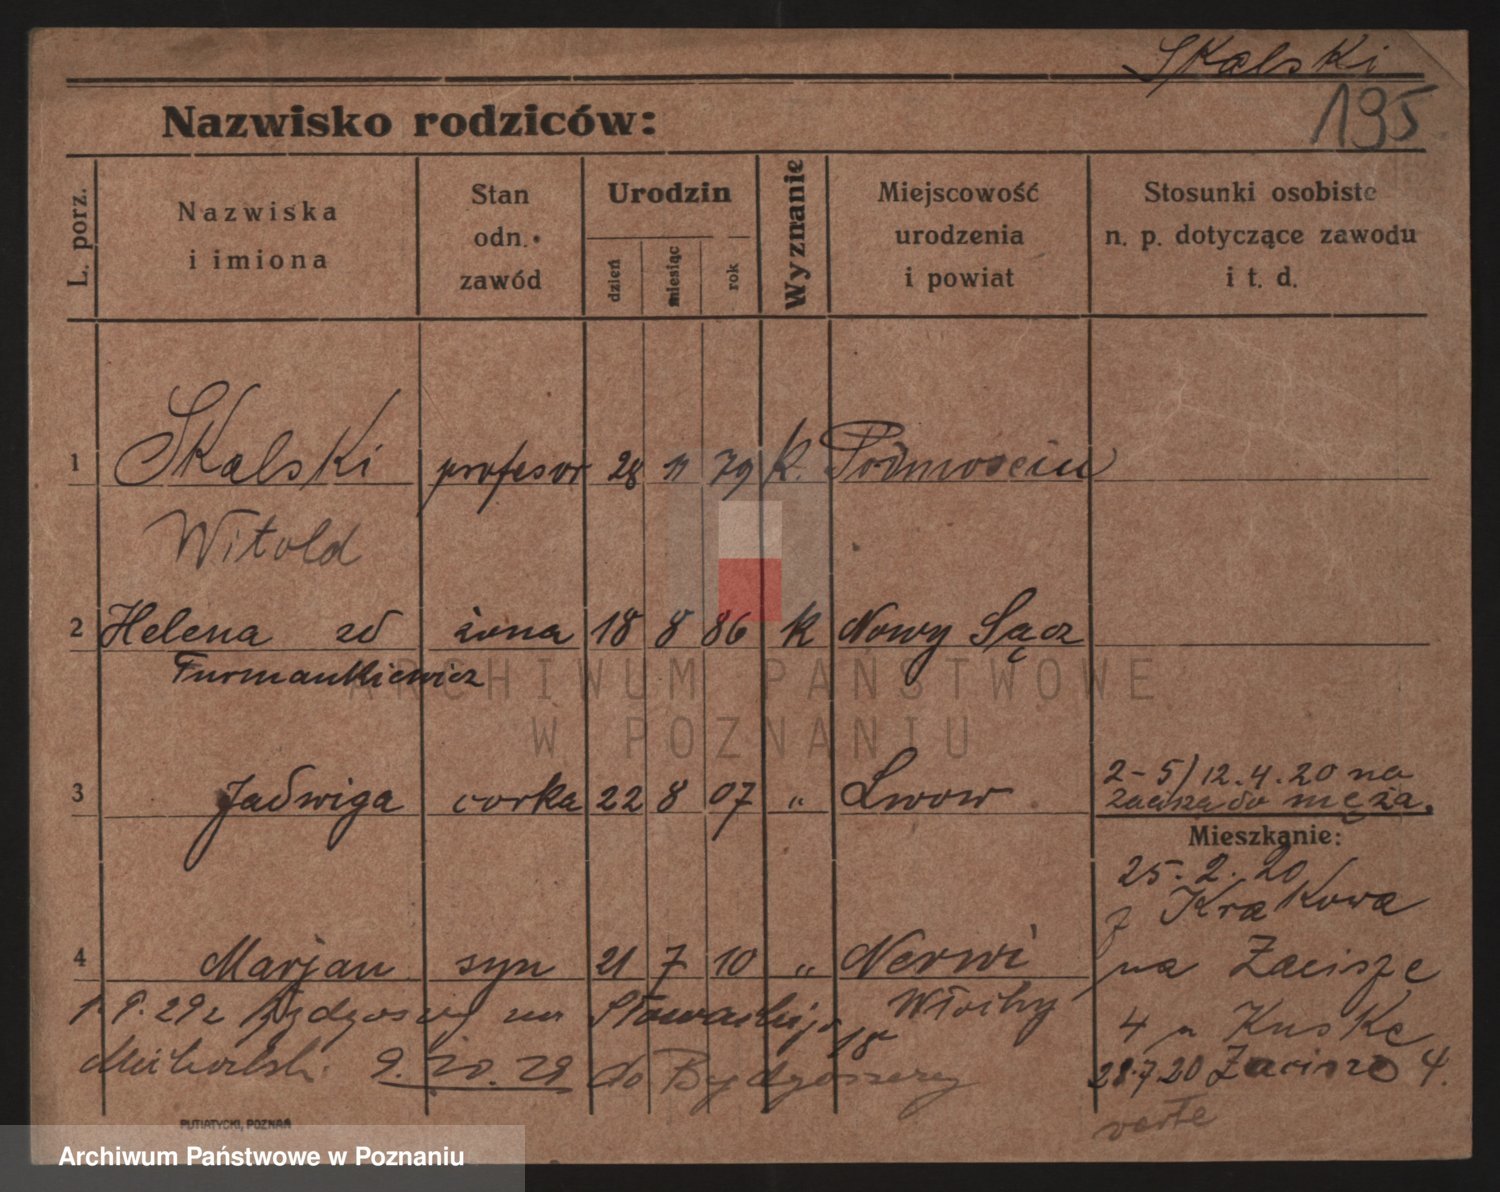 Skalski
195
Nazwisko rodziców:
L. porz.
Nazwiska
i imiona
Stan
odn.
zawód
Urodzin
dzień
miesiąc
rok
Wyznanie
Miejscowość
urodzenia
i powiat
Stosunki osobiste
n. p. dotyczące zawodu
i t. d.
1 Skalski profesor 28 11 79 k.
Witold
2 Helena zd żona 18 8 86 k Nowy Sącz
Furmankiewicz
3 Jadwiga corka 22 8 07 " Lwow
2-5) 12.4.20 na
do męża.
Mieszkanie:
25.2.20
z Krakowa
4 Marjan syn 21 7 10 " Nerwi
na Zacisze
Włochy
1.9.29 z Bydgoszczy na Słowackiego 18
4 u Kuske
9.10.29 do Bydgoszczy
28.7.20 Zacisze 4.
verte
PUTIATYCKI, POZNAŃ
ARCHIWUM PAŃSTWOWE
W POZNANIU
Archiwum Państwowe w Poznaniu